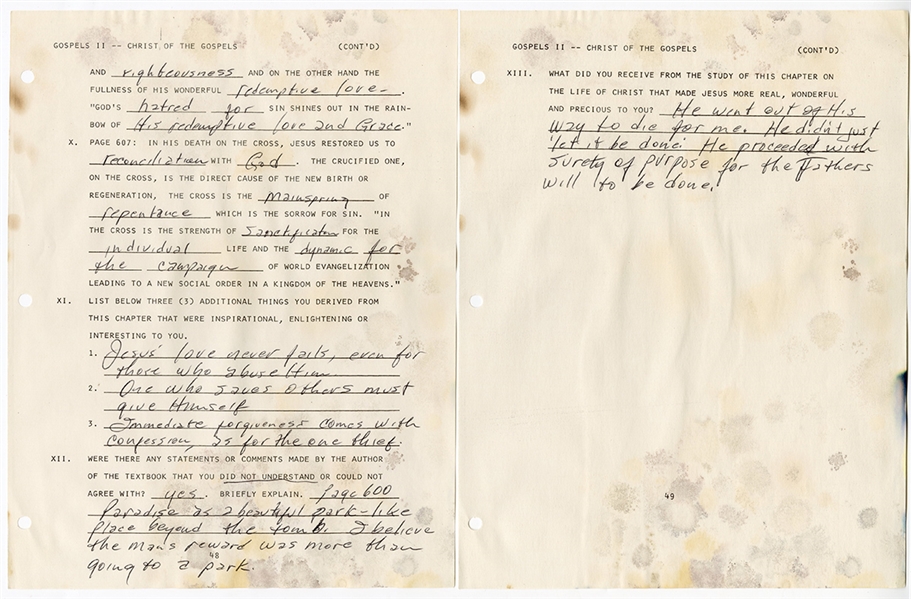 GOSPELS II -- CHRIST OF THE GOSPELS (CONT'D)
AND righteousness AND ON THE OTHER HAND THE
FULLNESS OF HIS WONDERFUL redemptive love.
"GOD'S hatred for SIN SHINES OUT IN THE RAIN-
BOW OF His redemptive love and Grace."
X. PAGE 607: IN HIS DEATH ON THE CROSS, JESUS RESTORED US TO
reconciliation WITH God. THE CRUCIFIED ONE,
ON THE CROSS, IS THE DIRECT CAUSE OF THE NEW BIRTH OR
REGENERATION, THE CROSS IS THE mainspring OF
repentance WHICH IS THE SORROW FOR SIN. "IN
THE CROSS IS THE STRENGTH OF Sanctification FOR THE
individual LIFE AND THE dynamic for
the campaign OF WORLD EVANGELIZATION
LEADING TO A NEW SOCIAL ORDER IN A KINGDOM OF THE HEAVENS."
XI. LIST BELOW THREE (3) ADDITIONAL THINGS YOU DERIVED FROM
THIS CHAPTER THAT WERE INSPIRATIONAL, ENLIGHTENING OR
INTERESTING TO YOU.
1. Jesus' love never fails, even for
those who abuse Him.
2. One who saves others must
give Himself
3. Immediate forgiveness comes with
confession, as for the one thief.
XII. WERE THERE ANY STATEMENTS OR COMMENTS MADE BY THE AUTHOR
OF THE TEXTBOOK THAT YOU DID NOT UNDERSTAND OR COULD NOT
AGREE WITH? yes. BRIEFLY EXPLAIN. Page 600
Paradise as a beautiful park-like
place beyond the tomb. I believe
the man's reward was more than
48
going to a park.
GOSPELS II -- CHRIST OF THE GOSPELS (CONT'D)
XIII. WHAT DID YOU RECEIVE FROM THE STUDY OF THIS CHAPTER ON
THE LIFE OF CHRIST THAT MADE JESUS MORE REAL, WONDERFUL
AND PRECIOUS TO YOU? He went out of His
way to die for me. He didn't just
let it be done. He proceeded with
surety of purpose for the Fathers
will to be done.
49